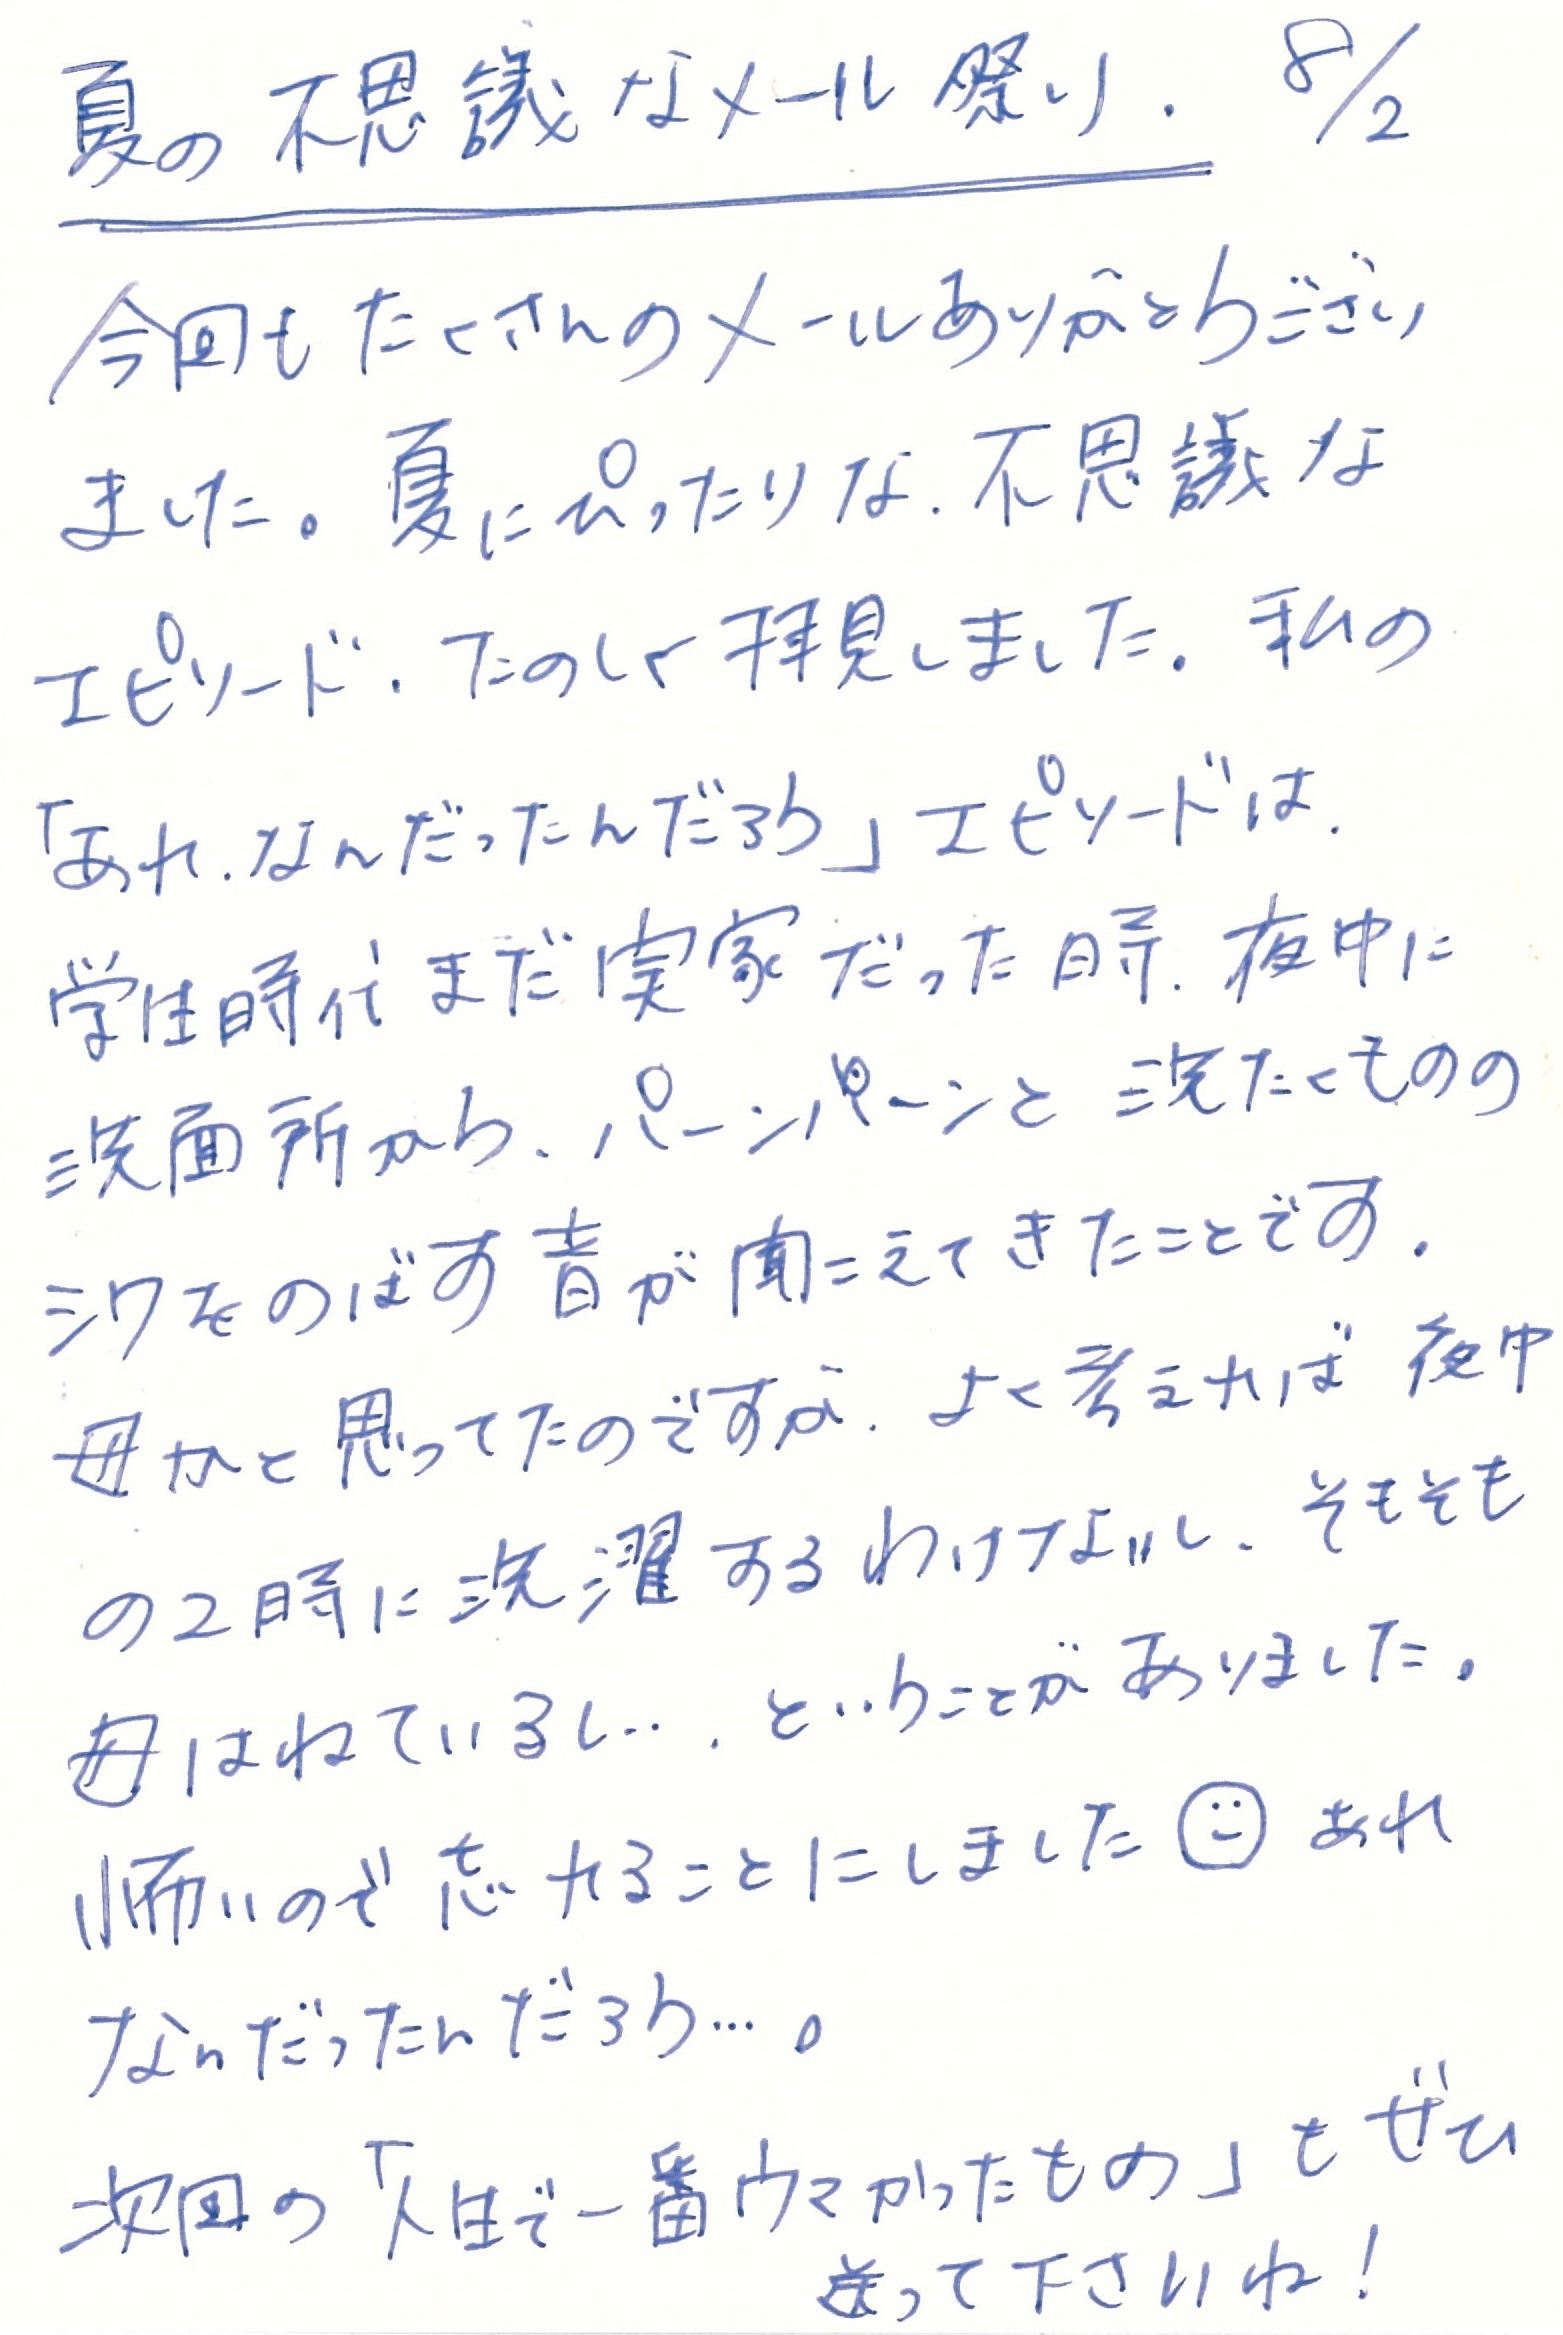 夏の不思議なメール祭り. 8/2
今回もたくさんのメールありがとうござい
ました。夏にぴったりな、不思議な
エピソード、たのしく拝見しました。私の
「あれ、なんだったんだろう」エピソードは、
学生時代まだ実家だった時、夜中に
洗面所から、パーンパーンと洗たくものの
シワをのばす音が聞こえてきたことです。
母かと思ってたのですが、よく考えれば夜中
の2時に洗濯するわけないし、そもそも
母はねているし…、ということがありました。
怖いので忘れることにしました☺あれ
なんだったんだろう…。
次回の「人生で一番ウマかったもの」もぜひ
送って下さいね!